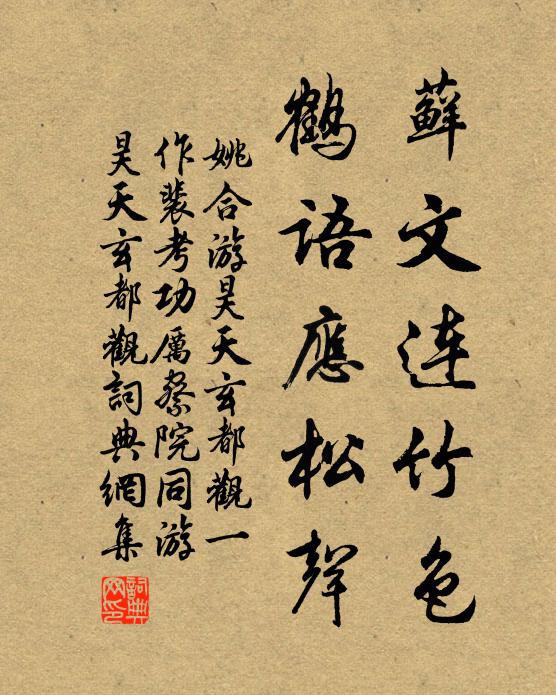 蘚文连竹色
鶴語應松聲
姚合游昊天玄都觀一
作裴考功厲察院同游
昊天玄都觀詞典網集
詞典
网印